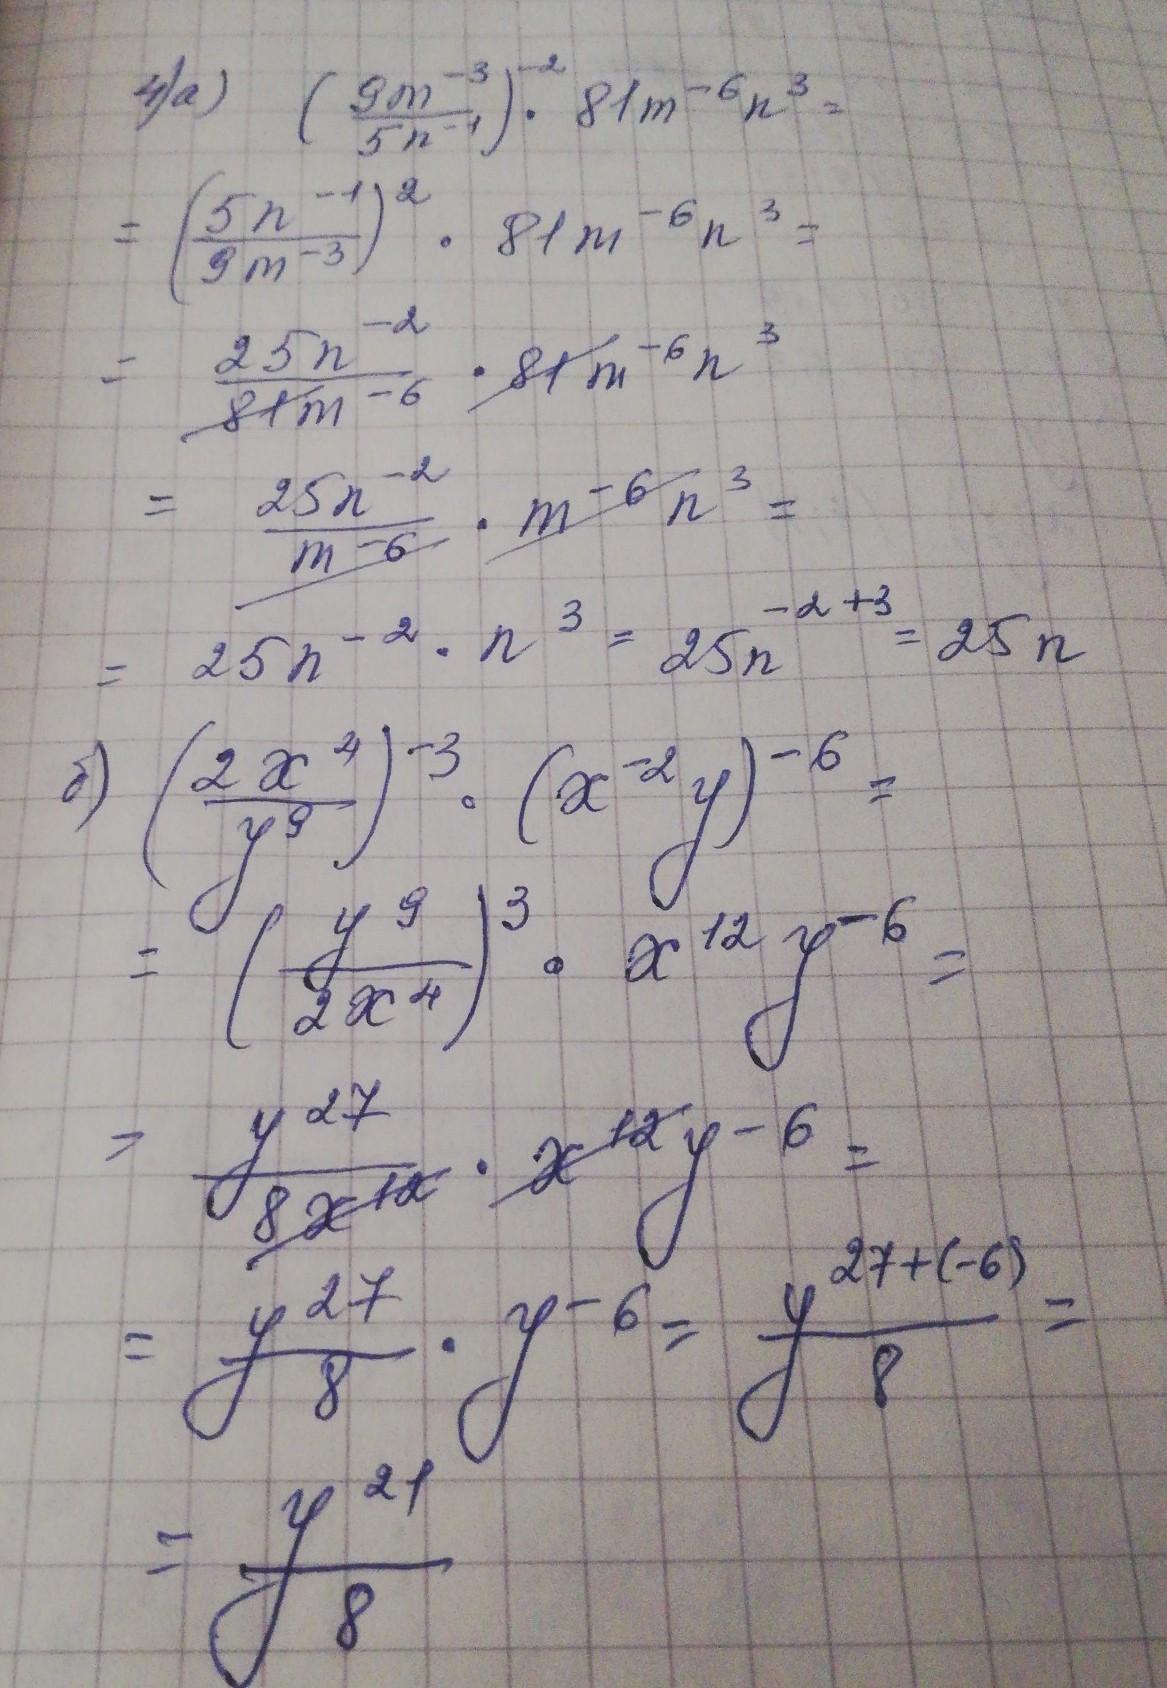 4)а) (9m⁻³/5n⁻¹)⁻² · 81m⁻⁶n³ =
= (5n⁻¹/9m⁻³)² · 81m⁻⁶n³ =
= 25n⁻²/81m⁻⁶ · 81m⁻⁶n³
= 25n⁻²/m⁻⁶ · m⁻⁶n³ =
= 25n⁻² · n³ = 25n⁻²⁺³ = 25n
б) (2x⁴/y⁹)⁻³ · (x⁻²y)⁻⁶ =
= (y⁹/2x⁴)³ · x¹²y⁻⁶ =
= y²⁷/8x¹² · x¹²y⁻⁶ =
= y²⁷/8 · y⁻⁶ = y²⁷⁺⁽⁻⁶⁾/8 =
= y²¹/8